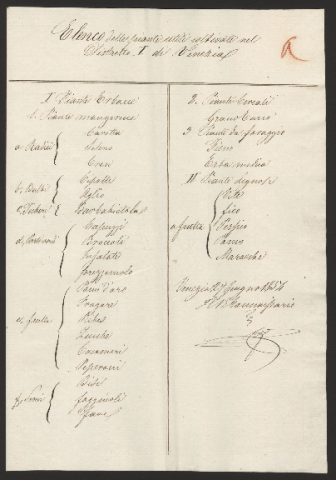 Elenco delle piante utili coltivate nel
Distretto I di Venezia
a
I Piante Erbacee
1. Piante mangerecce
a. Radici
Carotta
Seleno
Creni
b. Bulbi
Cipolle
Aglio
c. Tuberi
Barbabietola
Capuzzi
Broccoli
Insalate
Prezzemolo
e. frutta
Pomi d'oro
Fragare
Zucche
Cocomeri
Peperoni
f. Semi
Bisi
faggiuoli
Fave
2. Piante Cereali
Grano Turco
3. Piante da foraggio
Fieno
Erba medica
II Piante lignose
a frutta
Vite
fico
Persico
Pomo
Marasche
Venezia